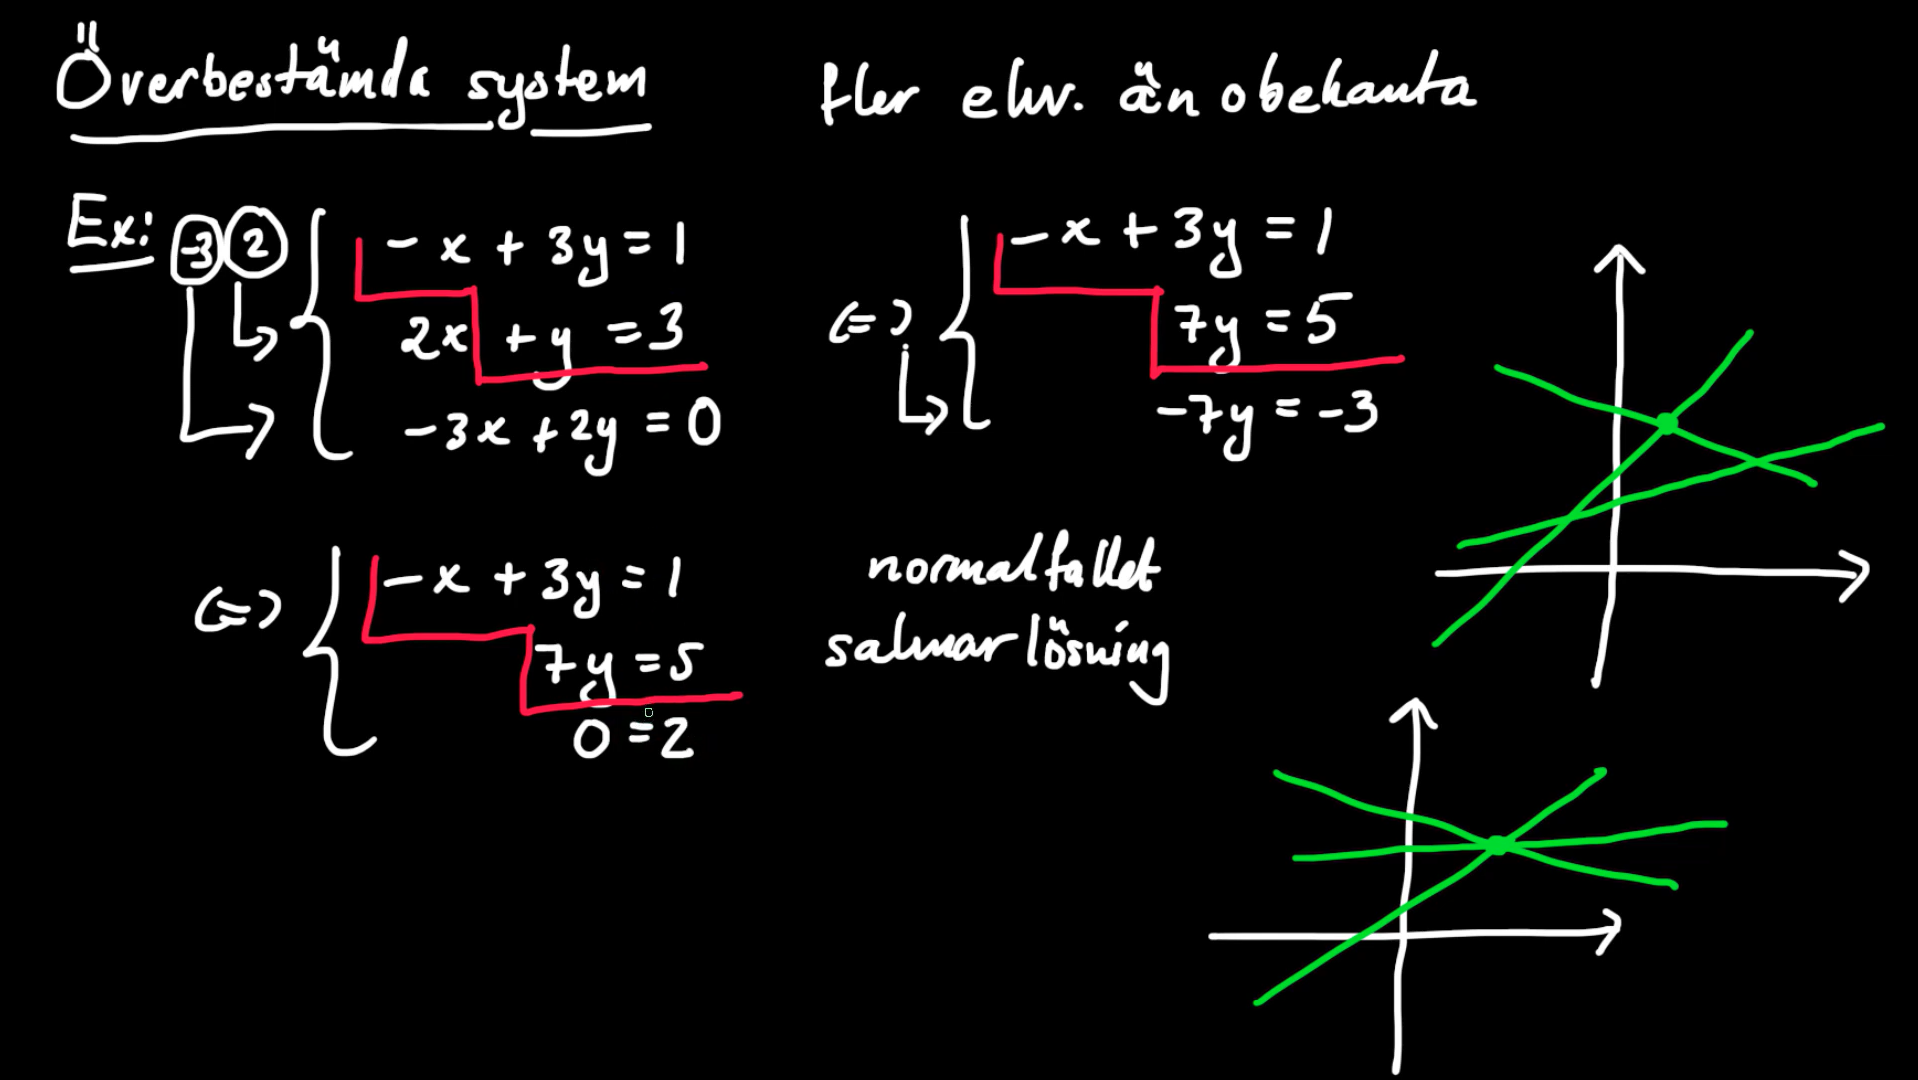 Överbestämda system
fler ekv. än obekanta
Ex: -3 2
-x + 3y = 1
2x + y = 3
-3x + 2y = 0
<=>
-x + 3y = 1
7y = 5
-7y = -3
<=>
-x + 3y = 1
7y = 5
0 = 2
normalfallet
saknar lösning